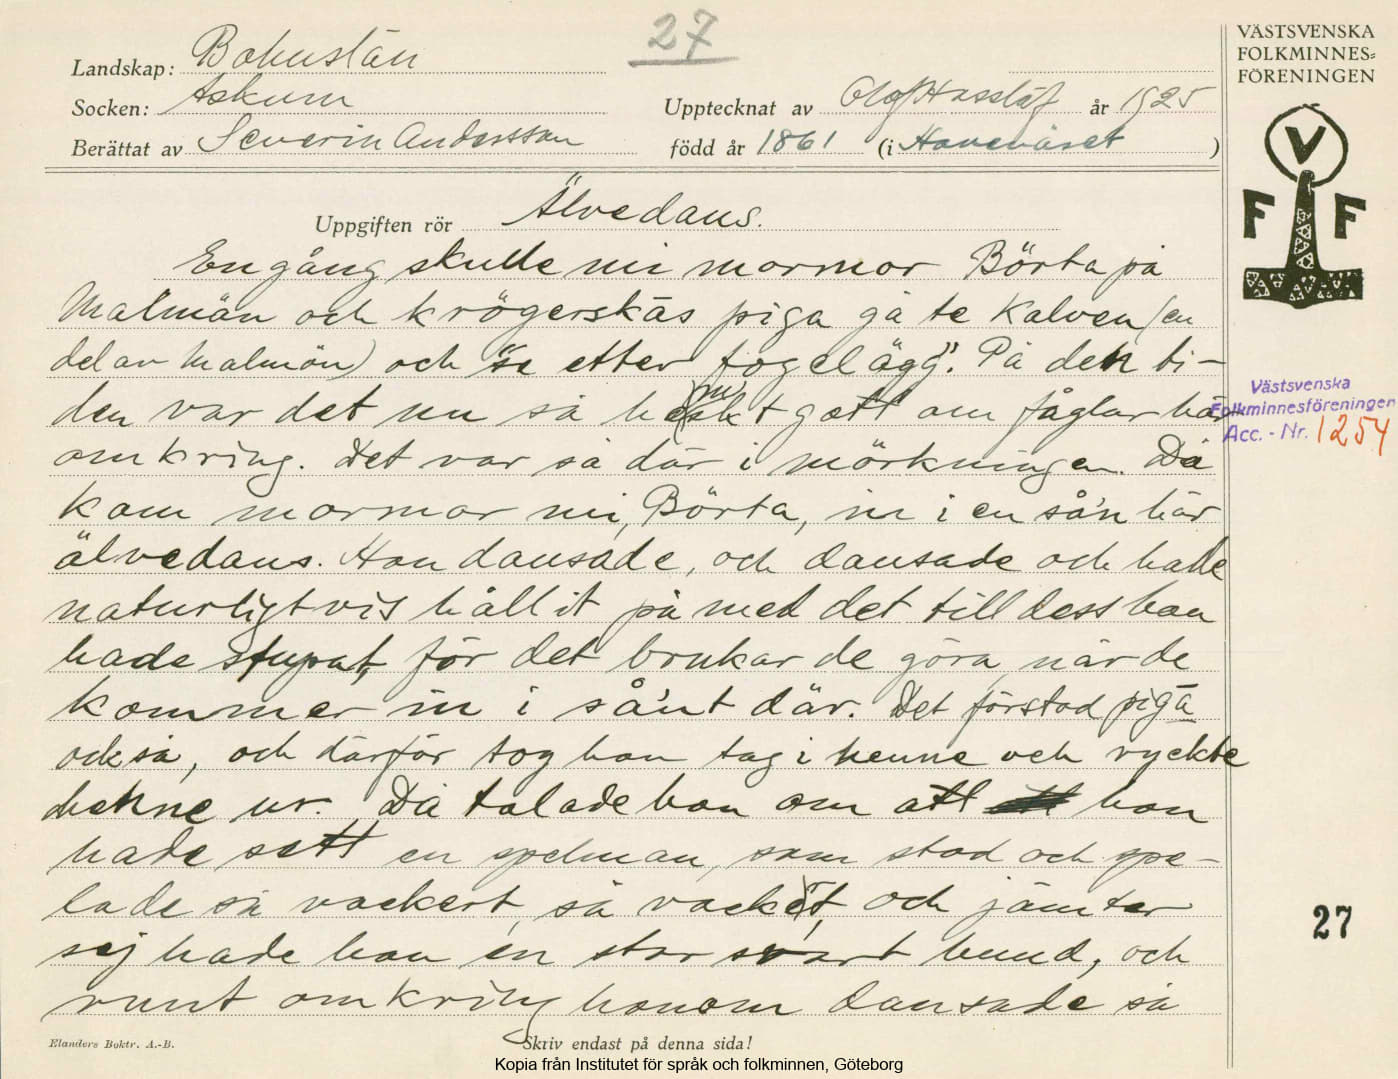 27
VÄSTSVENSKA
FOLKMINNES=
FÖRENINGEN
Landskap: Bohuslän
Socken: Askum
Upptecknat av Olof Hasslöf år 1925
Berättat av Severin Andersson född år 1861 (i Hovenäset)
V
F F
Uppgiften rör Älvedans.
En gång skulle mi mormor Börta på
Malmön och krögerskás piga gå te Kalven (en
del av Malmön) och "se etter fogelägg". På den ti-
den var det nu så hemskt gott om fåglar här
omkring. Det var så där i mörkningen. Då
kom mormor mi, Börta, in i en så'n här
älvedans. Hon dansade, och dansade och hade
naturligtvis hållit på med det till dess hon
hade stupat, för det brukar de göra när de
kommer in i så'nt där. Det förstod pigā
också, och därför tog hon tag i henne och ryckte
henne ur. Då talade hon om att hon
hade sett en spelman, som stod och spe-
lade så vackert, så vackert, och jämter
sej hade han en stor svart hund, och
runt omkring honom dansade så
Västsvenska
Folkminnesföreningen
Acc. - Nr. 1254
27
Elanders Boktr. A.-B.
Skriv endast på denna sida!
Kopia från Institutet för språk och folkminnen, Göteborg